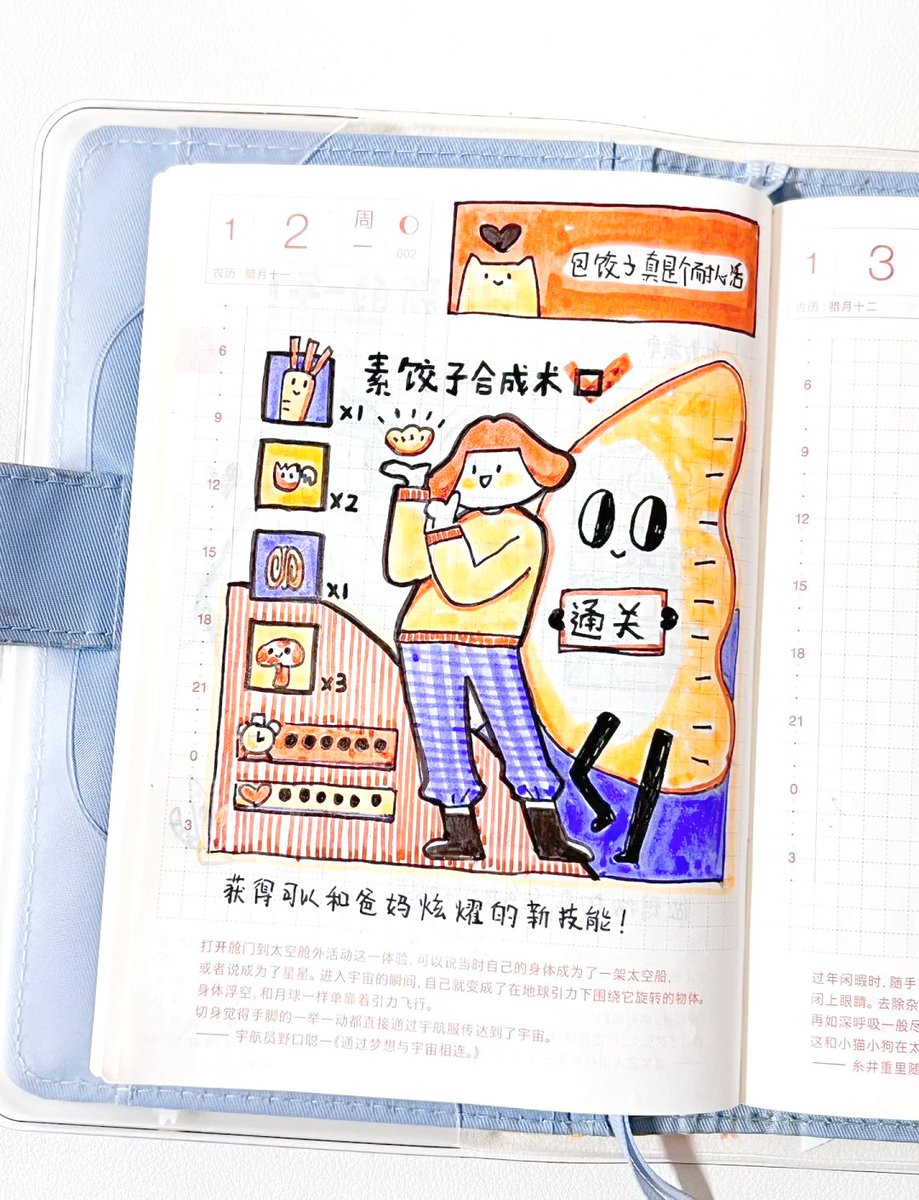 1 2 周一
002
农历 腊月十一
包饺子真是个耐心活
素饺子合成术
x1
x2
x1
x3
通关
6
9
12
15
18
21
0
3
获得可以和爸妈炫耀的新技能!
打开舱门到太空舱外活动这一体验,可以说当时自己的身体成为了一架太空船,
或者说成为了星星。进入宇宙的瞬间,自己就变成了在地球引力下围绕它旋转的物体。
身体浮空,和月球一样单靠着引力飞行。
切身觉得手脚的一举一动都直接通过宇航服传达到了宇宙。
—— 宇航员野口聪一《通过梦想与宇宙相连。》
1 3
农历 腊月十二
6
9
12
15
18
21
0
3
过年闲暇时,随手
闭上眼睛。去除杂
再如深呼吸一般尽
这和小猫小狗在太
—— 糸井重里随